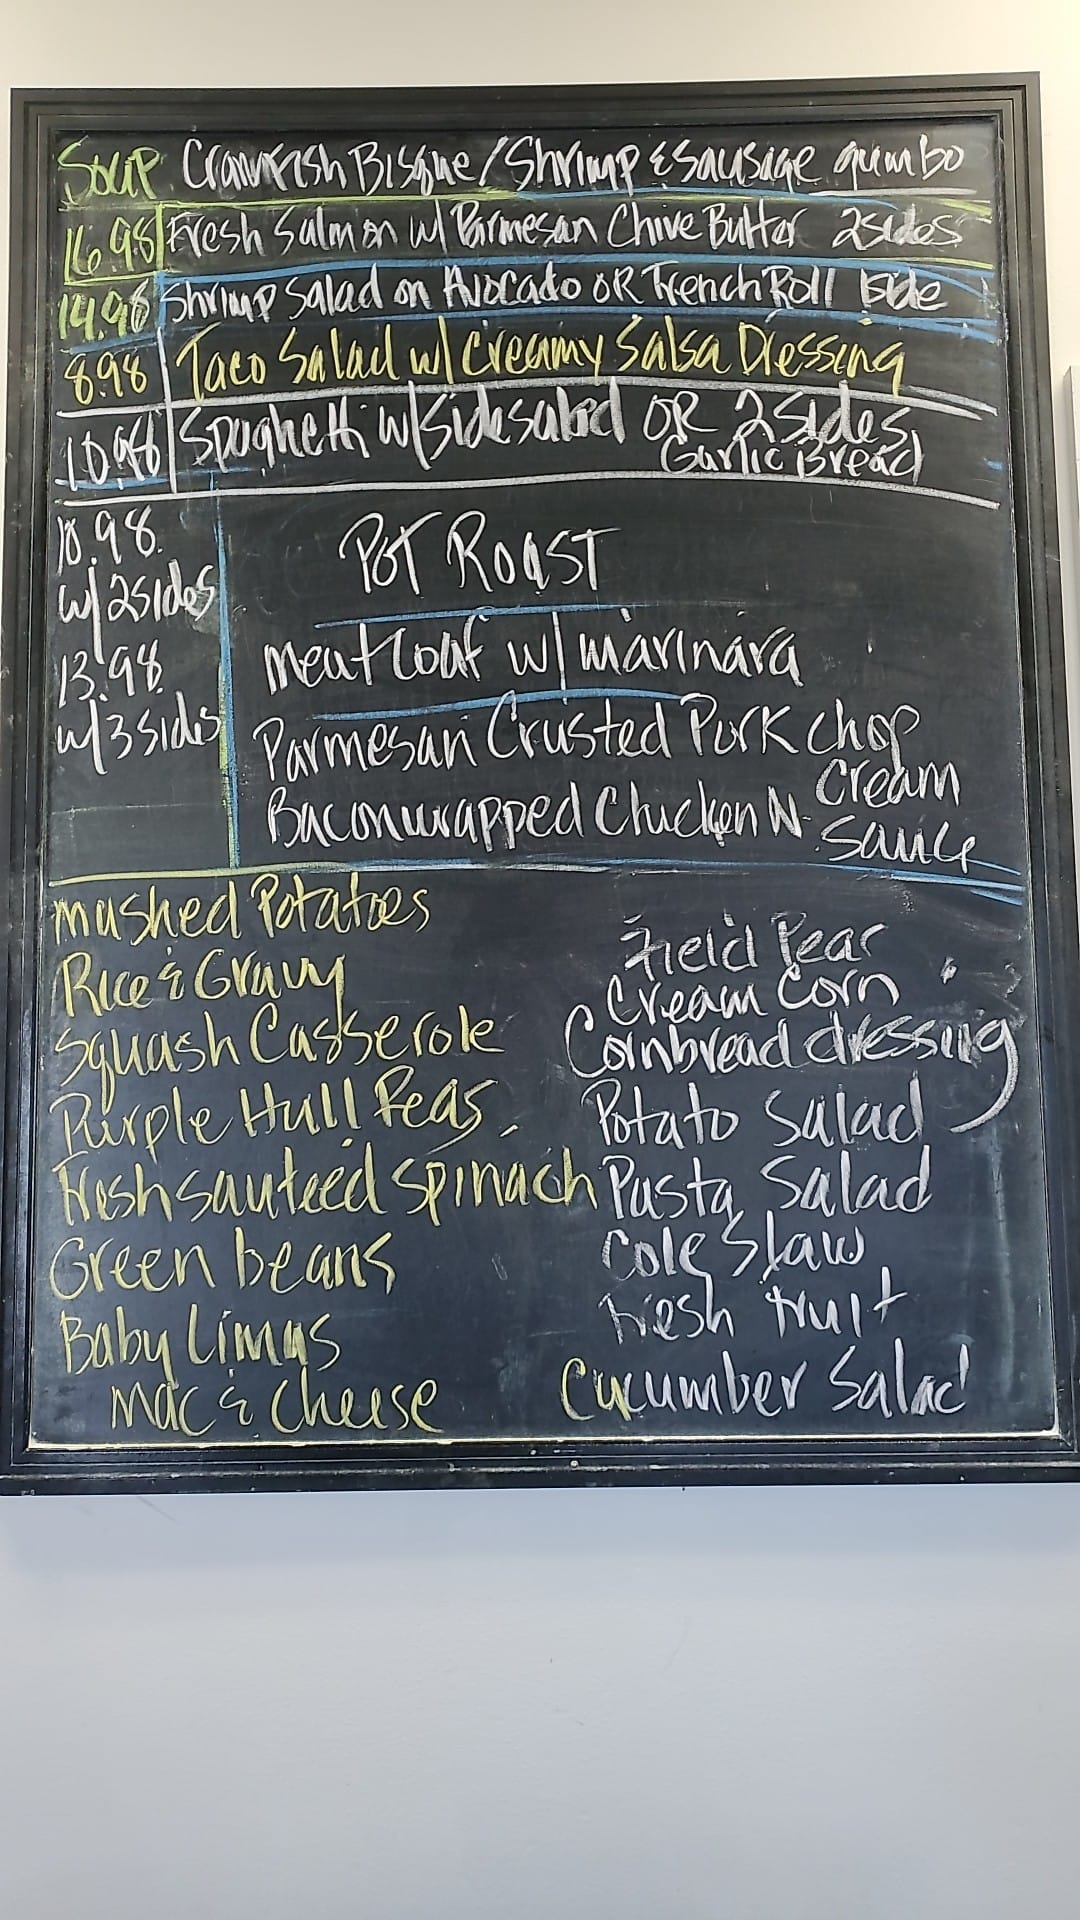 Soup Crawfish Bisque / Shrimp & Sausage gumbo
16.98 Fresh Salmon w/ Parmesan Chive Butter 2sides
14.98 Shrimp Salad on Avocado OR French Roll 1side
8.98 Taco Salad w/ Creamy Salsa Dressing
10.98 Spaghetti w/ side salad OR 2 Sides
Garlic Bread
10.98
w/ 2sides
13.98
w/ 3 sides
Pot Roast
meat loaf w/ marinara
Parmesan Crusted Pork chop
Bacon wrapped Chicken N Cream
Sauce
mashed Potatoes
Rice & Gravy
Squash Casserole
Purple Hull Peas
Fresh sauteed spinach
Green beans
Baby Limas
Mac & Cheese
Field Peas
Cream Corn
Cornbread dressing
Potato Salad
Pasta Salad
Cole Slaw
Fresh fruit
Cucumber Salad